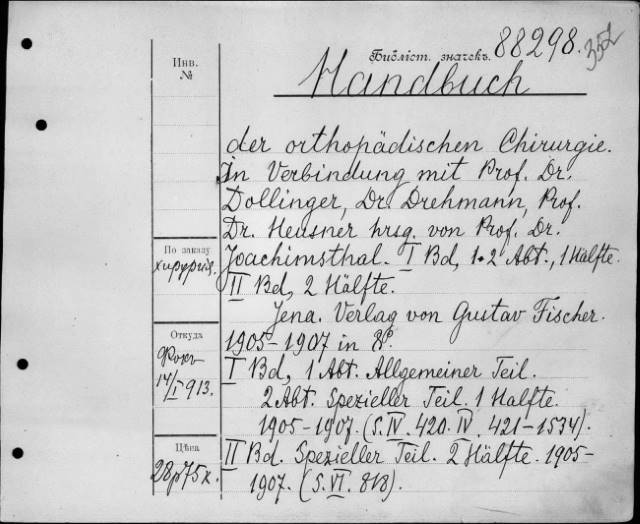 Библіст. значекъ. 88298.
Handbuch
Инв.
№
der orthopädischen Chirurgie.
In Verbindung mit Prof. Dr.
Dollinger, Dr. Drehmann, Prof.
Dr. Heusner hrsg. von Prof. Dr.
По заказу
Joachimsthal. I Bd, 1-2 Abt., 1 Hälfte.
хирургія.
II Bd, 2 Hälfte.
Jena. Verlag von Gustav Fischer.
Откуда
1905-1907 in 8º.
Фокъ
I Bd, 1 Abt. Allgemeiner Teil.
14/I 913.
2 Abt. Spezieller Teil. 1 Halfte.
1905-1907. (S. IV. 420. IV. 421-1534).
Цѣна
II Bd. Spezieller Teil. 2 Hälfte. 1905-
28р75к.
1907. (S. VI. 818).